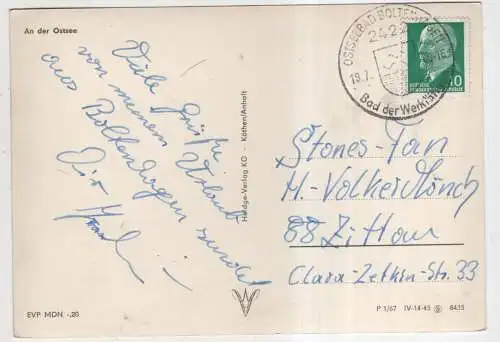 An der Ostsee
Viele Grüße
von meinem Urlaub
aus Boltenhagen sendet
Dir
Heldge-Verlag KG · Köthen/Anhalt
EVP MDN -,20
OSTSEEBAD BOLTENHAGEN
242
19.7.
Bad der Werktätigen
10
Stones-Fan
H.-Volker Mönch
88 Zittau
Clara-Zetkin-Str. 33
P 1/67 IV-14-45 8415